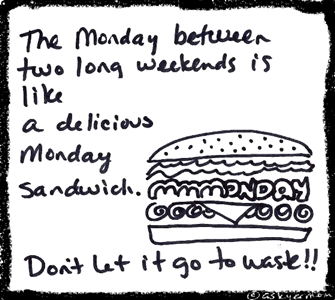 The Monday between
two long weekends is
like
a delicious
Monday
Sandwich.
mmmmONDAY
Don't let it go to waste!!